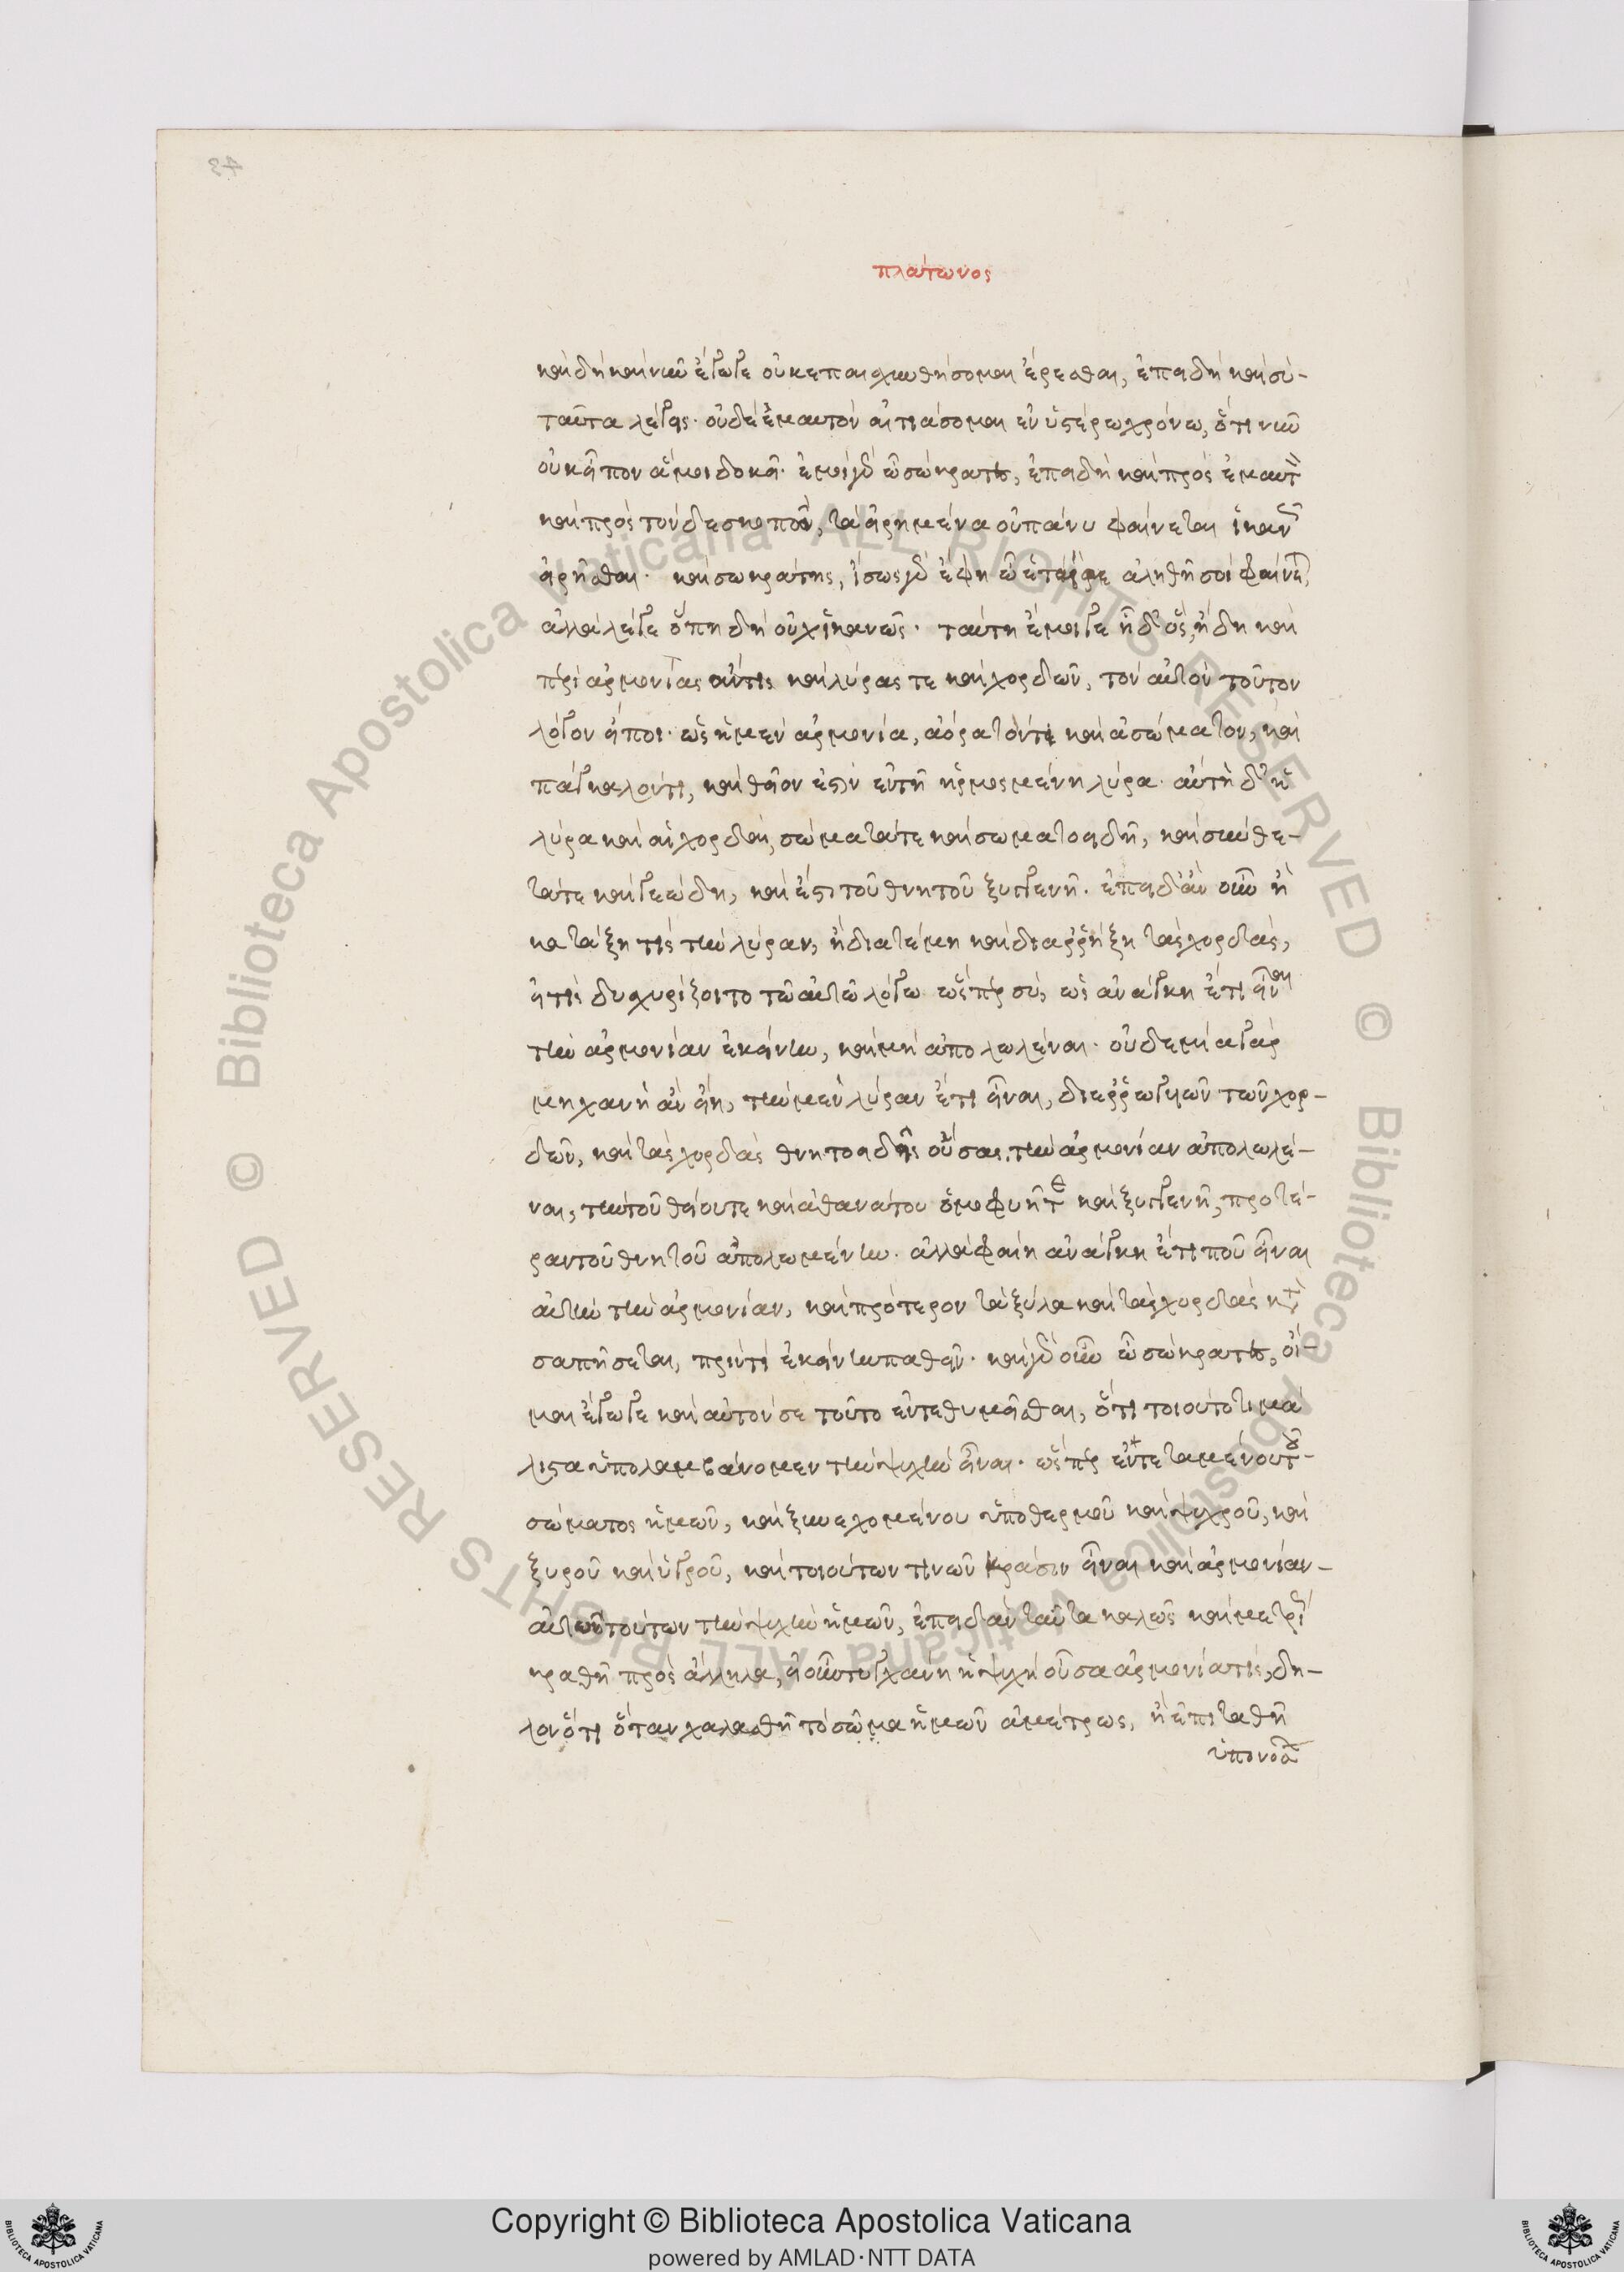 πλάτωνος
καὶ δὴ καὶ νῦν ἔγωγε οὐκ ἐπαισχυνθήσομαι ἐρέσθαι, ἐπειδὴ καὶ σὺ-
ταῦτα λέγεις· οὐδὲ ἐμαυτὸν αἰτιάσομαι ἐν ὑστέρω χρόνω, ὅτι νῦν
οὐκ εἶπον ἅ μοι δοκεῖ· ἐμοὶ γὰρ ὦ σώκρατες, ἐπειδὴ καὶ πρὸς ἐμαυτὸν
καὶ πρὸς τόνδε σκοπῶ, τὰ εἰρημένα οὐ πάνυ φαίνεται ἱκανῶς
εἰρῆσθαι· καὶ ὁ σωκράτης, ἴσως γὰρ ἔφη ὦ ἑταῖρε ἀληθῆ σοὶ φαίνεται,
ἀλλὰ λέγε ὅπη δὴ οὐχ ἱκανῶς· ταύτη ἔμοιγε ἦ δ' ὅς, ἤδη καὶ
περὶ ἁρμονίας ἄν τις καὶ λύρας τε καὶ χορδῶν, τὸν αὐτὸν τοῦτον
λόγον εἴποι· ὡς ἡ μὲν ἁρμονία, ἀόρατόν τι καὶ ἀσώματον, καὶ
πάγκαλόν τι, καὶ θεῖον ἐστὶν ἐν τῆ ἡρμοσμένη λύρα· αὐτὴ δ' ἡ
λύρα καὶ αἱ χορδαὶ, σώματά τε καὶ σωματοειδῆ, καὶ σύνθε-
τά τε καὶ γεώδη, καὶ ἐστὶ τοῦ θνητοῦ ξυγγενῆ· ἐπειδὰν οὖν ἢ
κατάξη τὶς τὴν λύραν, ἢ διατέμη καὶ διαρρήξη τὰς χορδὰς,
εἴ τις διισχυρίζοιτο τῶ αὐτῶ λόγω ὥσπερ σύ, ὡς ἀνάγκη ἔτι εἶναι
τὴν ἁρμονίαν ἐκείνην, καὶ μὴ ἀπολωλέναι· οὐδεμία γὰρ
μηχανὴ ἂν εἴη, τὴν μὲν λύραν ἔτι εἶναι, διερρωγυιῶν τῶν χορ-
δῶν, καὶ τὰς χορδὰς θνητοειδεῖς οὔσας, τὴν ἁρμονίαν ἀπολωλέ-
ναι, τὴν τοῦ θείου τε καὶ ἀθανάτου ὁμοφυῆ τε καὶ ξυγγενῆ, προτέ-
ραν τοῦ θνητοῦ ἀπολομένην· ἀλλὰ φαίη ἀνάγκη ἔτι που εἶναι
αὐτὴν τὴν ἁρμονίαν, καὶ πρότερον τὰ ξύλα καὶ τὰς χορδὰς κατα
σαπήσεται, πρίν τι ἐκείνην παθεῖν· καὶ γὰρ οὖν ὦ σώκρατες, οἶ-
μαι ἔγωγε καὶ αὐτόν σε τοῦτο ἐντεθυμῆσθαι, ὅτι τοιοῦτό τι μά
λιστα ὑπολαμβάνομεν τὴν ψυχὴν εἶναι· ὥσπερ ἐντεταμένου τοῦ-
σώματος ἡμῶν, καὶ ξυνεχομένου ὑπὸ θερμοῦ καὶ ψυχροῦ, καὶ
ξηροῦ καὶ ὑγροῦ, καὶ τοιούτων τινῶν κρᾶσιν εἶναι καὶ ἁρμονίαν-
αὐτῶν τούτων τὴν ψυχὴν ἡμῶν, ἐπειδὰν ταῦτα καλῶς καὶ μετρίως
κραθῆ πρὸς ἄλληλα, εἰ οὖν τυγχάνη ἡ ψυχὴ οὖσα ἁρμονία τίς, δῆ-
λον ὅτι ὅταν χαλασθῆ τὸ σῶμα ἡμῶν ἀμέτρως, ἢ ἐπιταθῆ
Copyright © Biblioteca Apostolica Vaticana
powered by AMLAD·NTT DATA